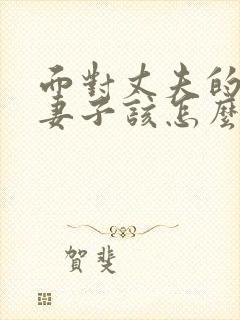 而對丈夫的
妻子該怎麼
賀斐